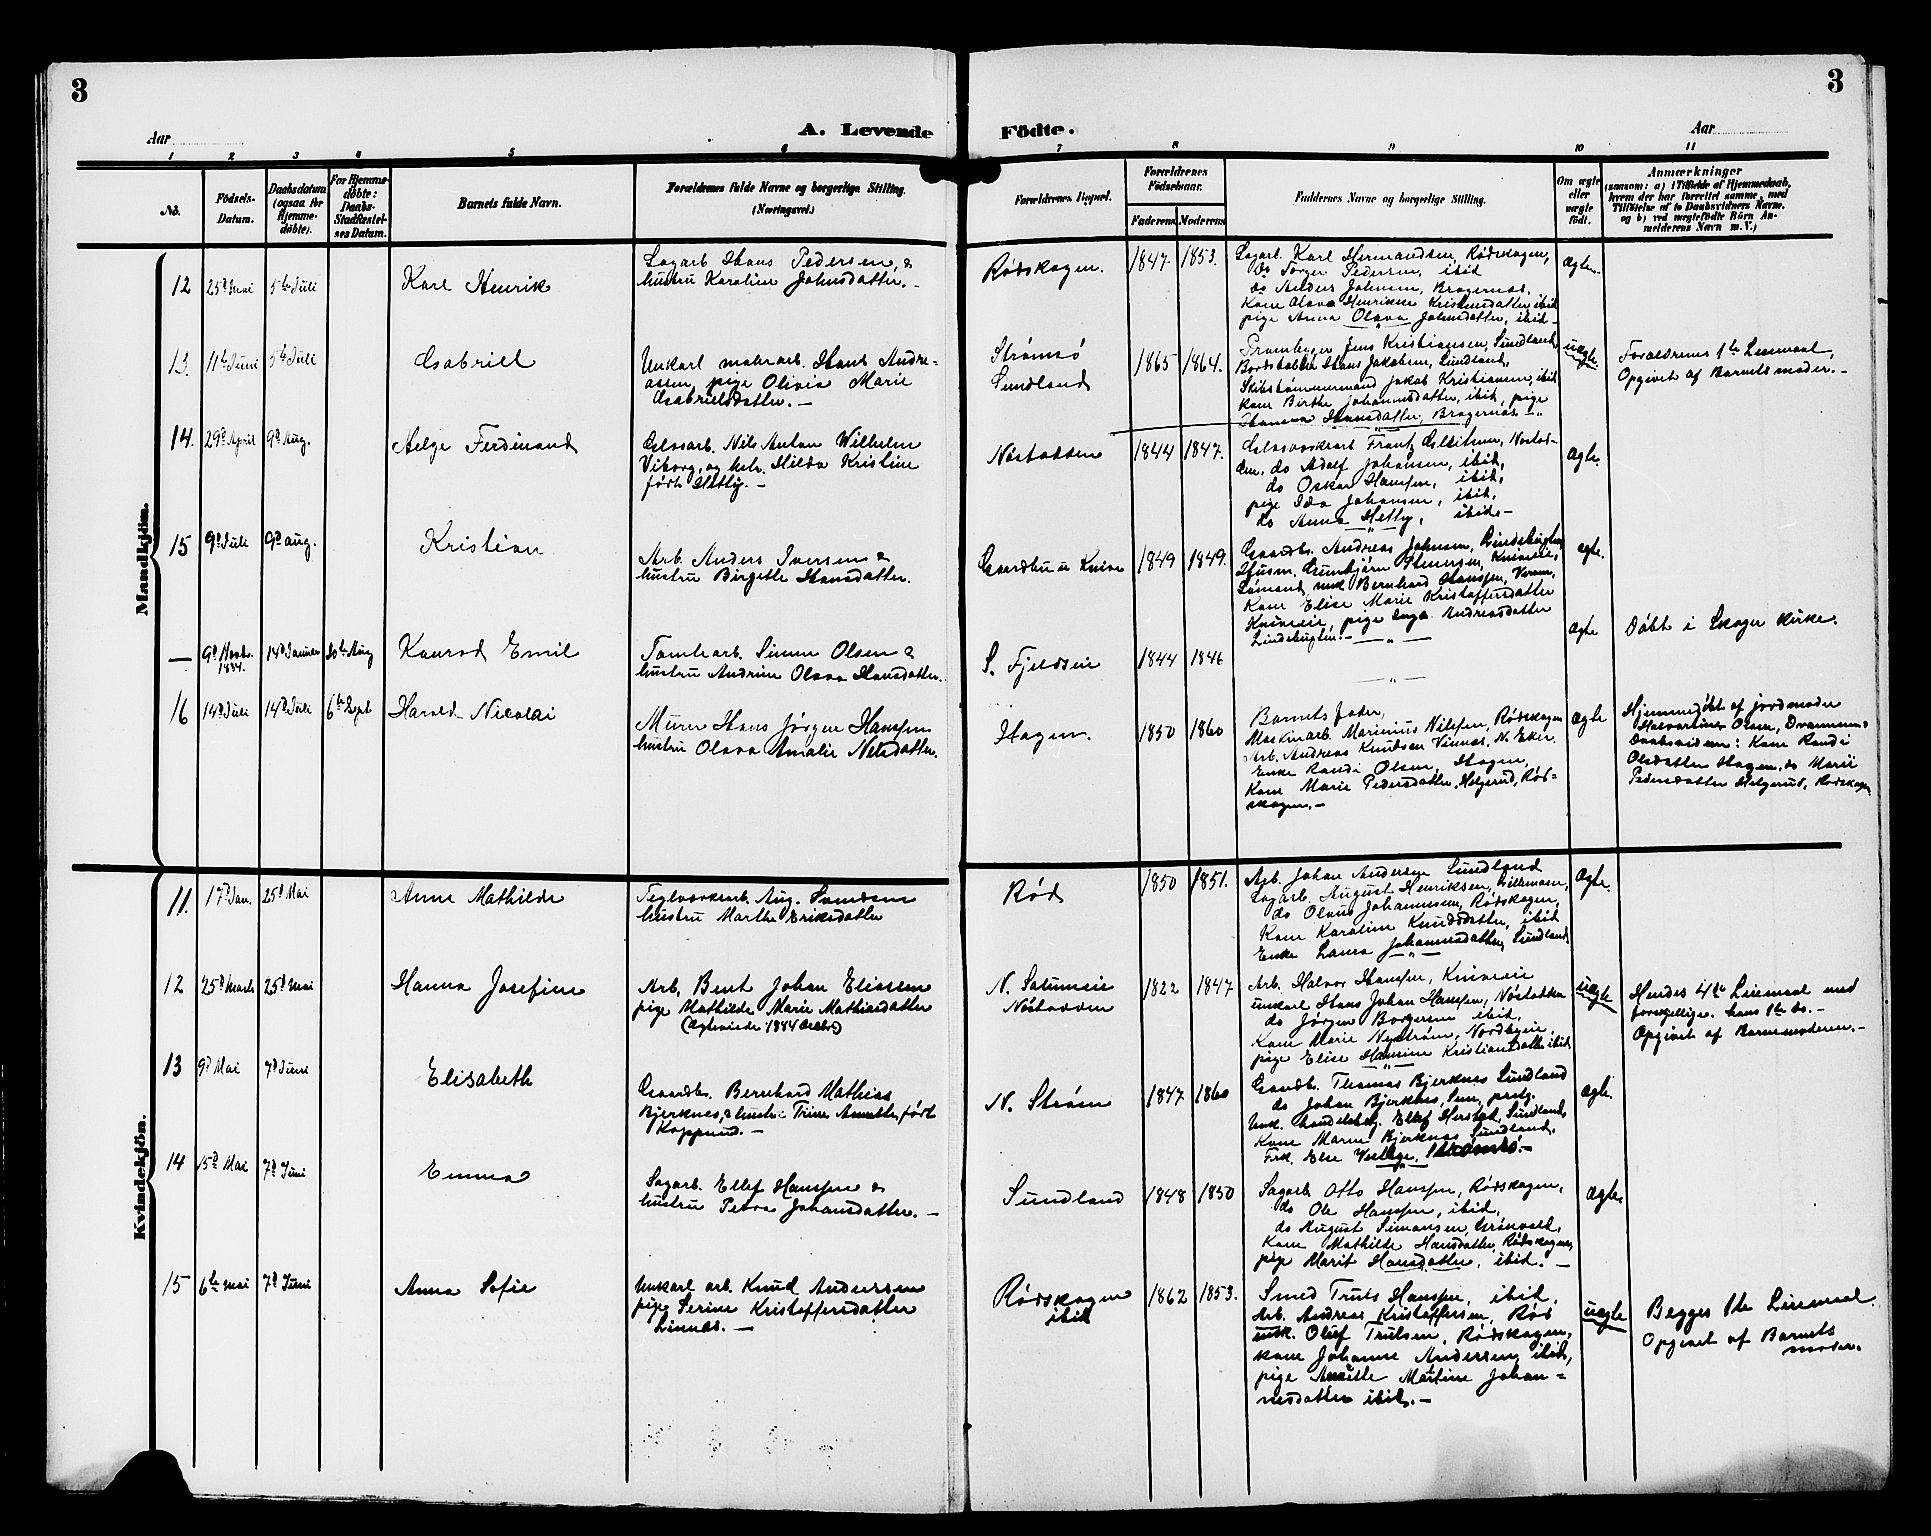 3
3
Aar
A. Levende
Födte.
Aar
1
2
3
4
5
6
7
8
9
10
11
No.
Födsels-
Datum.
Daabsdatum
(ogsaa for
Hjemme-
döbte).
For Hjemme-
döbte:
Daabs-
Stadfæstel-
ses Datum.
Barnets fulde Navn.
Forældrenes fulde Navne og borgerlige Stilling.
(Næringsvei.)
Forældrenes Bopæl.
Forældrenes
Födselsaar.
Faderens
Moderens
Faddernes Navne og borgerlige Stilling.
Om ægte
eller
uægte
födt.
Anmærkninger
(saasom: a) i Tilfælde af Hjemmedaab,
hvem der har forrettet samme, med
Tilföielse af to Daabsvidners Navne,
og b) ved uægtefödte Börn An-
melderens Navn m. V.)
Mandkjön.
12
25d Mai
5te Juli
Karl Henrik
Sagarb. Hans Pedersen &
hustru Karoline Johnsdatter. -
Rødskogen.
1847
1853.
Sagarb. Karl Hermandsen, Rødskogen,
do Torger Pedersen, ibid
do Anders Johnsen, Bragernæs,
Kone Olava Henrikke Kristensdatter, ibid
pige Anna Olava Johnsdatter, ibid -
ægte.
13.
11te Juni
5te Juli
Gabriel
Unkarl malerarb. Hans Andre-
assen, pige Olivia Marie
Gabrielsdatter. -
Strømsø
Sundland
1865
1864.
Jens Kristiansen, Sundland,
Hans Jakobsen, Sundland,
Skibstømmermand Jakob Kristiansen, ibid
Kone Birthe Johannesdatter, ibid, pige
Hansdatter, Bragernæs -
uægte.
Forældrenes 1te Leiermaal,
Opgivet af Barnets moder. -
14.
29d April
9d Aug.
Helge Ferdinand
Glasarb. Nils Anton Wilhelm
Viborg, og hstr. Hilda Kristine
født Hetty. -
Nøstodden
1844
1847.
Glasværksarb Frantz Nøstod-
den, do Adolf Johansen, ibid,
do Oskar Hansen, ibid,
pige Ida Johansen, ibid,
do Anna Hetty, ibid. -
ægte.
15
9d Juli
9d aug.
Kristian
Arb. Anders Iversen &
hustru Birgitte Hansdatter.
Gaardbru u Knive
1849
1849.
Gaardb. Andreas Johnsen, Lindebugten,
Husm. Gunbjørn Knivere,
Sømand, unk Bernhard Hansen,
Kone Elise Marie Kristoffersdatter
Kniveeie, pige Inga Andreasdatter
Lindebugten. -
ægte.
—
9d Novbr.
1884.
14d Januar
30te Aug
Konrad Emil
Tomtearb. Simen Olsen &
hustru Andrine Olava Hansdatter.
S. Fjeldseie
1844
1846
ægte
Døbt i Skoger Kirke.
16
14d Juli
14d Juli
6te Sept
Harald Nicolai
Murer Hans Jørgen Hansen
hustru Olava Amalie Nilsdatter.
Hagen.
1850
1860
Barnets fader,
Maskinarb. Marinius Nilsen, Rødskogen
Arb. Andreas Knudsen Vinnæs, N. Eker
Enke Randi Olsen, Hagen,
Kone Marie Pedersdatter, Helgerud, Rød-
skogen. -
ægte
Hjemmedøbt af jordmoder
Halvardine Olsen, Drammen.
Daabsvidnen: Kone Randi
Olsdatter Hagen, do Marie
Pedersdatter Helgerud, Rødskogen
Kvindekjön.
11.
17d Jan.
25d Mai
Anne Mathilde
Teglværksarb. Aug. Svendsen
hustru Marthe Eriksdatter
Rød
1850
1851.
Arb. Johan Andersen Sundland
Sagarb. August Henriksen,
do Olaus Johannessen, Rødskogen,
Kone Karoline Knudsdatter, ibid
Enke Laura Johannesdatter, Sundland
ægte.
12
25d Marts
25d Mai
Hanna Josefine
Arb. Bent Johan Eliassen
pige Mathilde Marie Mathiasdatter
(ægteviede 1884 decbr.)
N. Solumseie
Nøstodden
1822
1847
Arb. Halvor Hansen, Knivereie
unkarl Hans Johan Hansen, Nøstodden
do Jørgen Borgersen ibid,
Kone Marie Nystrøm, Nordbyeie,
pige Elise Hansine Kristiansdatter ibid
uægte
Hendes 4de Leiermaal med
forskjellige. Hans 1te do. -
Opgivet af Barnemoderen. -
13
9d Mai
7d Juni
Elisabeth
Gaardb. Bernhard Mathias
Bjerknes, & hustru Trine Annette, født
Kopperud. -
N. Strøm
1847
1860
Gaardb. Thomas Bjerknes Sundland
do Johan Bjerknes,
Unk. Handelsbetj. Ellef Sundland,
Kone Maren Bjerknes Sundland,
Frk. Else Strømsø. -
ægte.
14
15d Mai
7d Juni
Emma
Sagarb. Ellef Hansen &
hustru Petra Johansdatter. -
Sundland
1848
1850
Sagarb Otto Hansen, Rødskogen,
do Ole Hansen, ibid,
do August Simonsen, Grønvold,
Kone Mathilde Hansdatter, Rødskogen,
pige Marit Hansdatter, ibid. -
ægte.
15
6te mai
7d Juni
Anna Sofie
Unkarl arb. Knud Andersen
pige Serine Kristoffersdatter
Linnæs. -
Rødskogen
ibid
1862
1853.
Smed Truls Hansen, ibid,
Arb. Andreas Kristoffersen, Rød
unk. Oluf Trulsen, Rødskogen,
kone Johanne Andersen, ibid,
pige Anette Martine Johan-
nesdatter ibid. -
uægte
Begges 1te Leiermaal.
Opgivet af Barnets
moder.